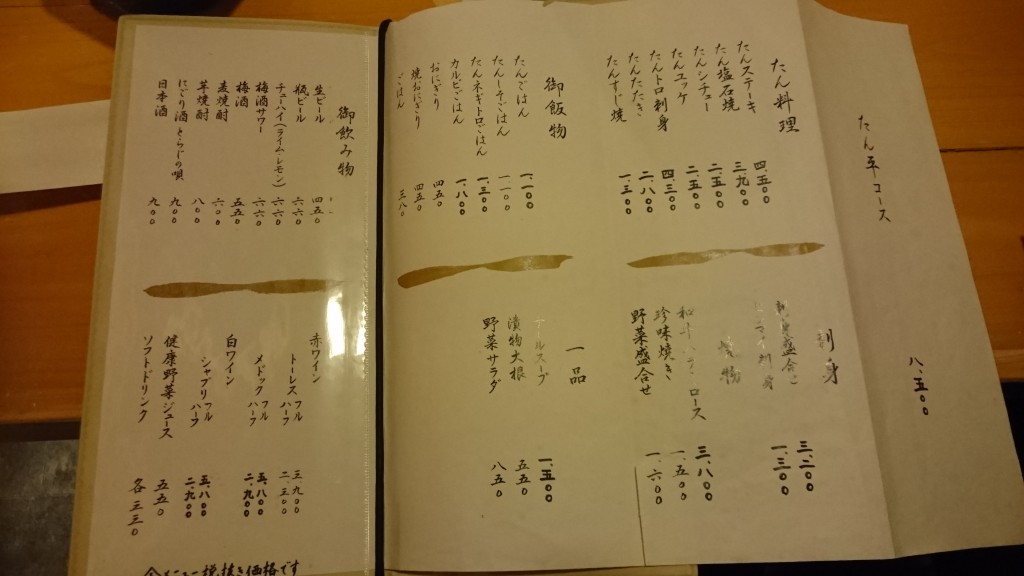 たん平コース 八、五〇〇
たん料理
たんステーキ 四、五〇〇
たん塩石焼 三、九〇〇
たんシチュー 二、五〇〇
たんユッケ 二、五〇〇
たんトロ刺身 四、三〇〇
たんたたき 二、八〇〇
たんすじ焼 一、三〇〇
御飯物
たんごはん 一、一〇〇
たんーチごはん 一、一〇〇
たんネギトロごはん 一、三〇〇
カルビごはん 一、八〇〇
おにぎり 四五〇
焼おにぎり 四五〇
ごはん 三八〇
刺身
盛合せ 三、二〇〇
刺身 一、三〇〇
物
ロース 三、八〇〇
珍味焼き 一、五〇〇
野菜盛合せ 一、六〇〇
一品
テールスープ 一、五〇〇
漬物大根 五五〇
野菜サラダ 八五〇
御飲み物
生ビール 四五〇
瓶ビール 六六〇
チューハイ(ライム・レモン) 六六〇
梅酒サワー 六六〇
梅酒 五五〇
麦焼酎 六〇〇
芋焼酎 八〇〇
にごり酒とらじの唄 九〇〇
日本酒 九〇〇
赤ワイン
トーレス フル 三、九〇〇
ハーフ 二、三〇〇
メドック フル 五、八〇〇
ハーフ 二、九〇〇
白ワイン
シャブリ フル 五、八〇〇
ハーフ 二、九〇〇
健康野菜ジュース 五五〇
ソフトドリンク 各三三〇
税抜き価格です